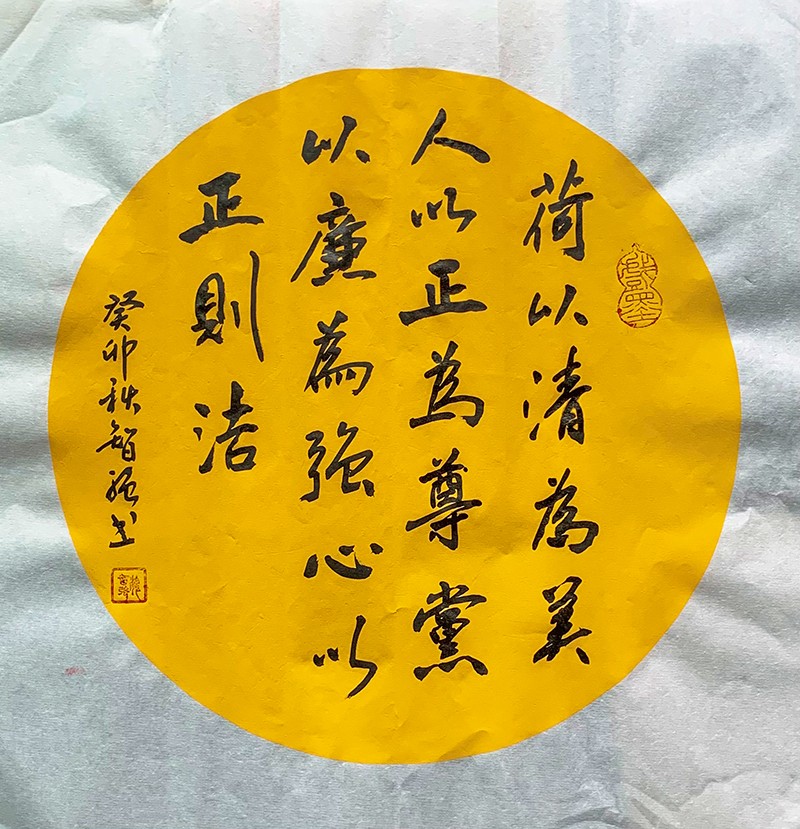 荷以清為美
人以正為尊黨
以廉為強心以
正則洁
癸卯秋智強書